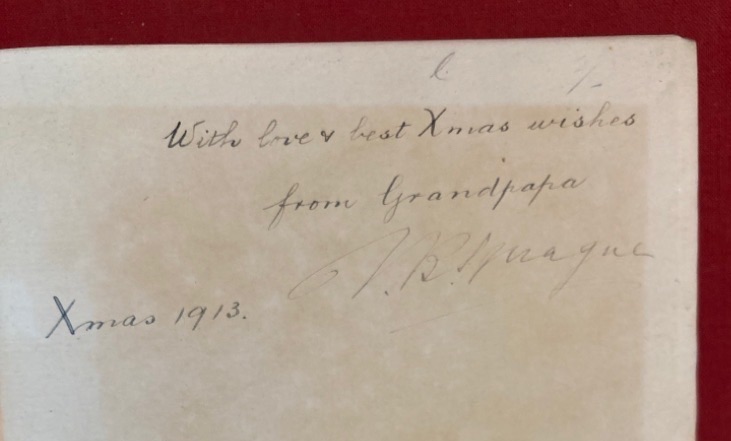 With love & best Xmas wishes
from Grandpapa
T. B. Sprague
Xmas 1913.